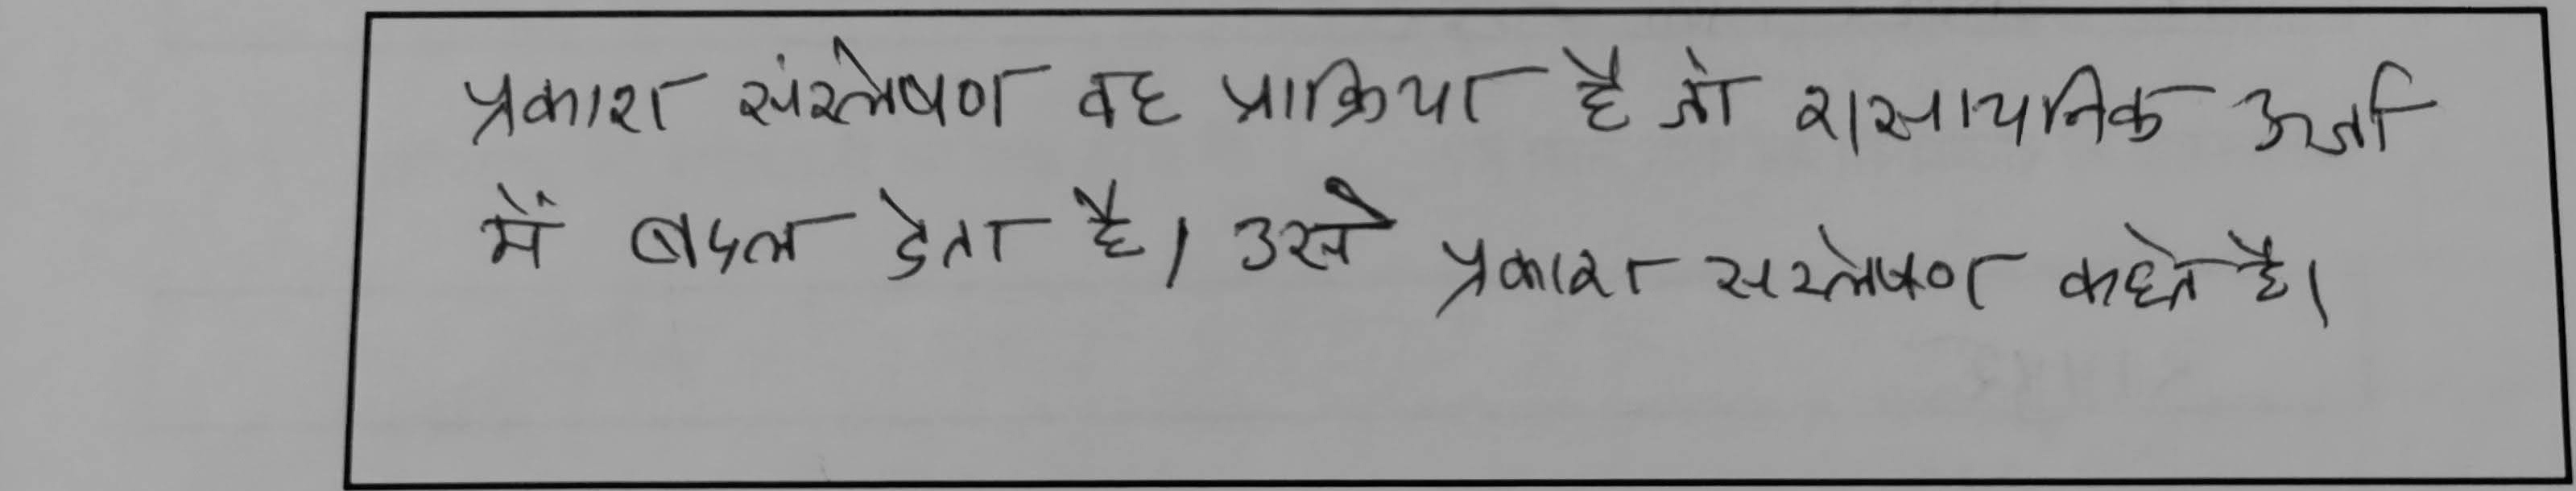 प्रकाश संश्लेषण वह प्राक्रिया है जो रासायनिक ऊर्जा
में बदल देता है। उसे प्रकाश सश्लेषण कहते है।